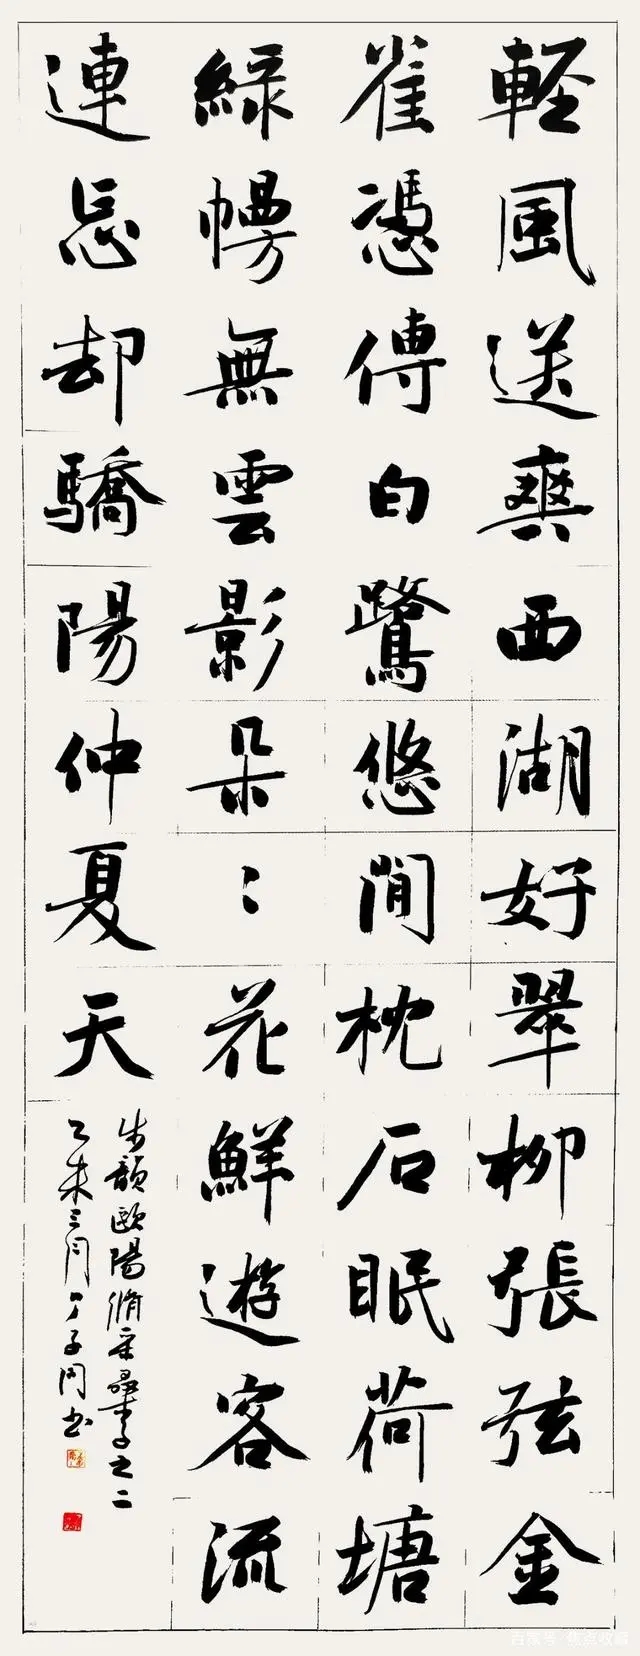 輕風送爽西湖好翠柳張弦金
雀憑傳白鷺悠閒枕石眠荷塘
綠幔無雲影朵〻花鮮遊客流
連忘却驕陽仲夏天
步韻歐陽脩采桑子之二
乙未三月 子 书
百家号